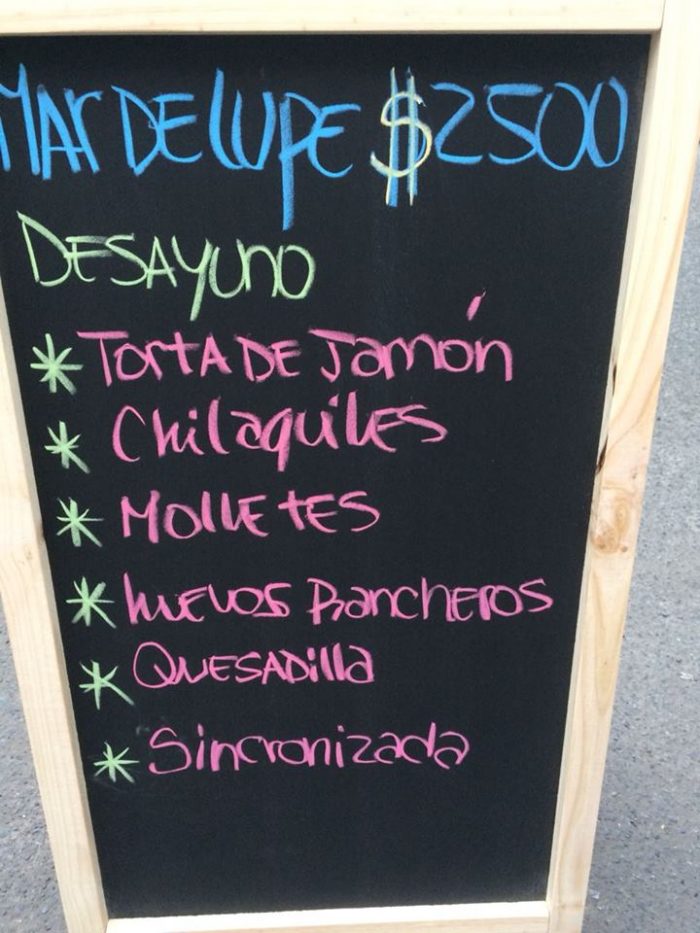 MAr DE LUPE $2500
DESAYUNO
* TortA DE Jamón
* Chilaquiles
* MOLLETES
* HUEVOS RANCHEROS
* QUESADilla
* Sincronizada